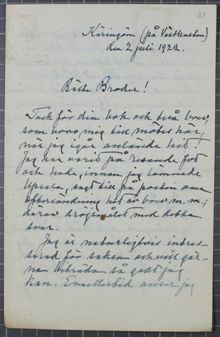 Käringön (på Västkusten)
den 2 juli 1922.
Käre Broder!
Tack för din bok och två brev,
som voro mig till mötes här,
när jag igår anlände hit!
Jag har varit på resande fot
och hade, innan jag lämnade
Upsala, sagt till på posten om
eftersändning hit av brev m. m.;
därav dröjsmålet med detta
svar.
Jag är naturligtvis intres-
serad för saken och vill gär-
na biträda så godt jag
kan. Emellertid anser jag